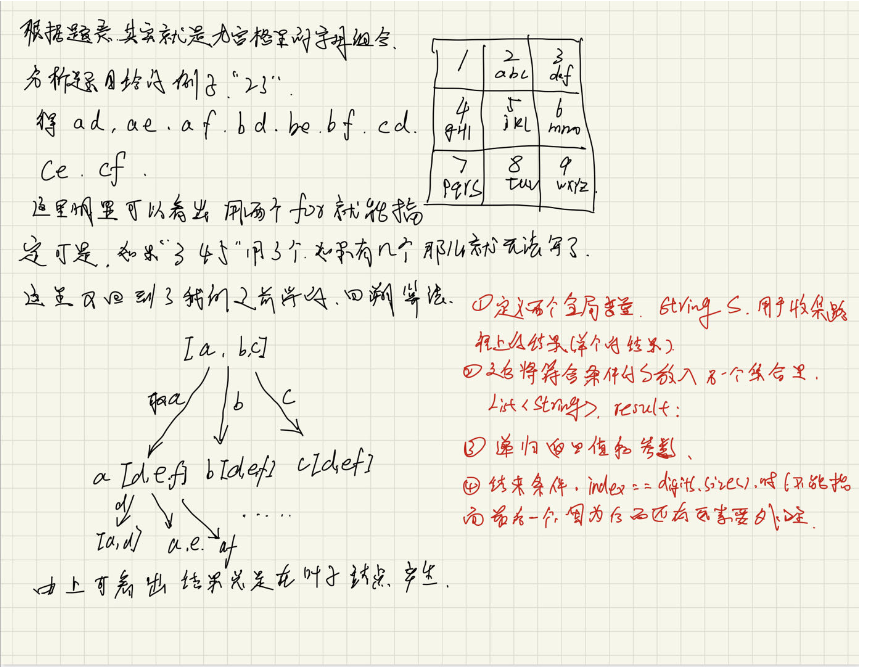 根据题意,其实就是九宫格里的字母组合.
分析题目给的例子."23".
得 ad, ae. af. bd. be. bf. cd.
ce. cf.
这里明显可以看出 用两个for就能搞
定可是,如果"345"用3个.如果有n个 那么就无法写了.
这里又回到了我们之前学的.回溯算法.
1 2 3
abc def
4 5 6
ghi jkl mno
7 8 9
pqrs tuv wxyz
[a, b,c]
取a b c
a [d,e,f] b[d,e,f] c[d,e,f]
d
[a,d] a,e. af
......
由上可看出 结果总是在叶子结点产生.
①定义两个全局变量. String S. 用于收集路
径上的结果(单个的结果)
②之后将符合条件的S放入 另一个集合里.
List<String>. result;
③ 递归返回值和参数.
④ 结束条件. index == digits.size().时(不能指
向最后一个,因为后面还有元素要处理.